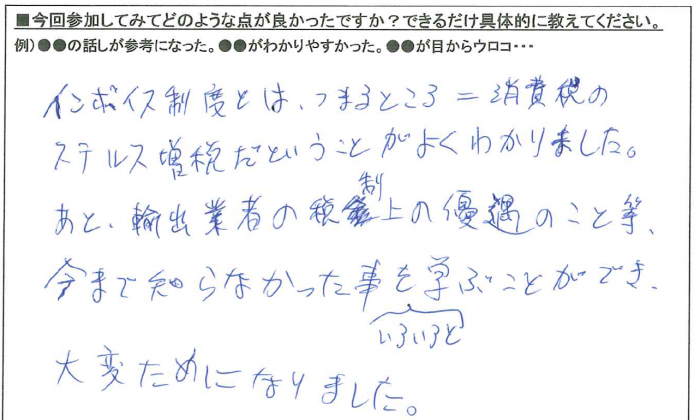 ■今回参加してみてどのような点が良かったですか？できるだけ具体的に教えてください。
例）●●の話しが参考になった。●●がわかりやすかった。●●が目からウロコ・・・
インボイス制度とは、つまるところ＝消費税の
ステルス増税だということがよくわかりました。
あと、輸出業者の税制上の優遇のこと等、
今まで知らなかった事を学ぶことができ、
いろいろと
大変ためになりました。